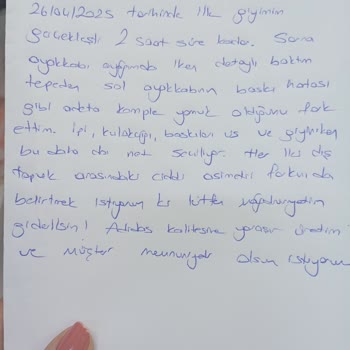 26/04/2025 tarihinde ilk giyimim
gerçekleşti 2 saat süre kadar. Sonra
ayakkabı ayağımda iken detaylı baktım
tepeden sol ayakkabının baskı hatası
gibi arkta komple yamuk olduğunu fark
ettim. İpi, kulakçığı, baskıları us ve giyerken
bu data da net seçiliyor. Her iki dış
topuk arasındaki ciddi asimetri farkını da
belirtmek istiyorum ki lütfen mağduriyetim
giderilsin! Adidas kalitesine yaraşır üretim
ve müşteri memnuniyeti olsun istiyorum